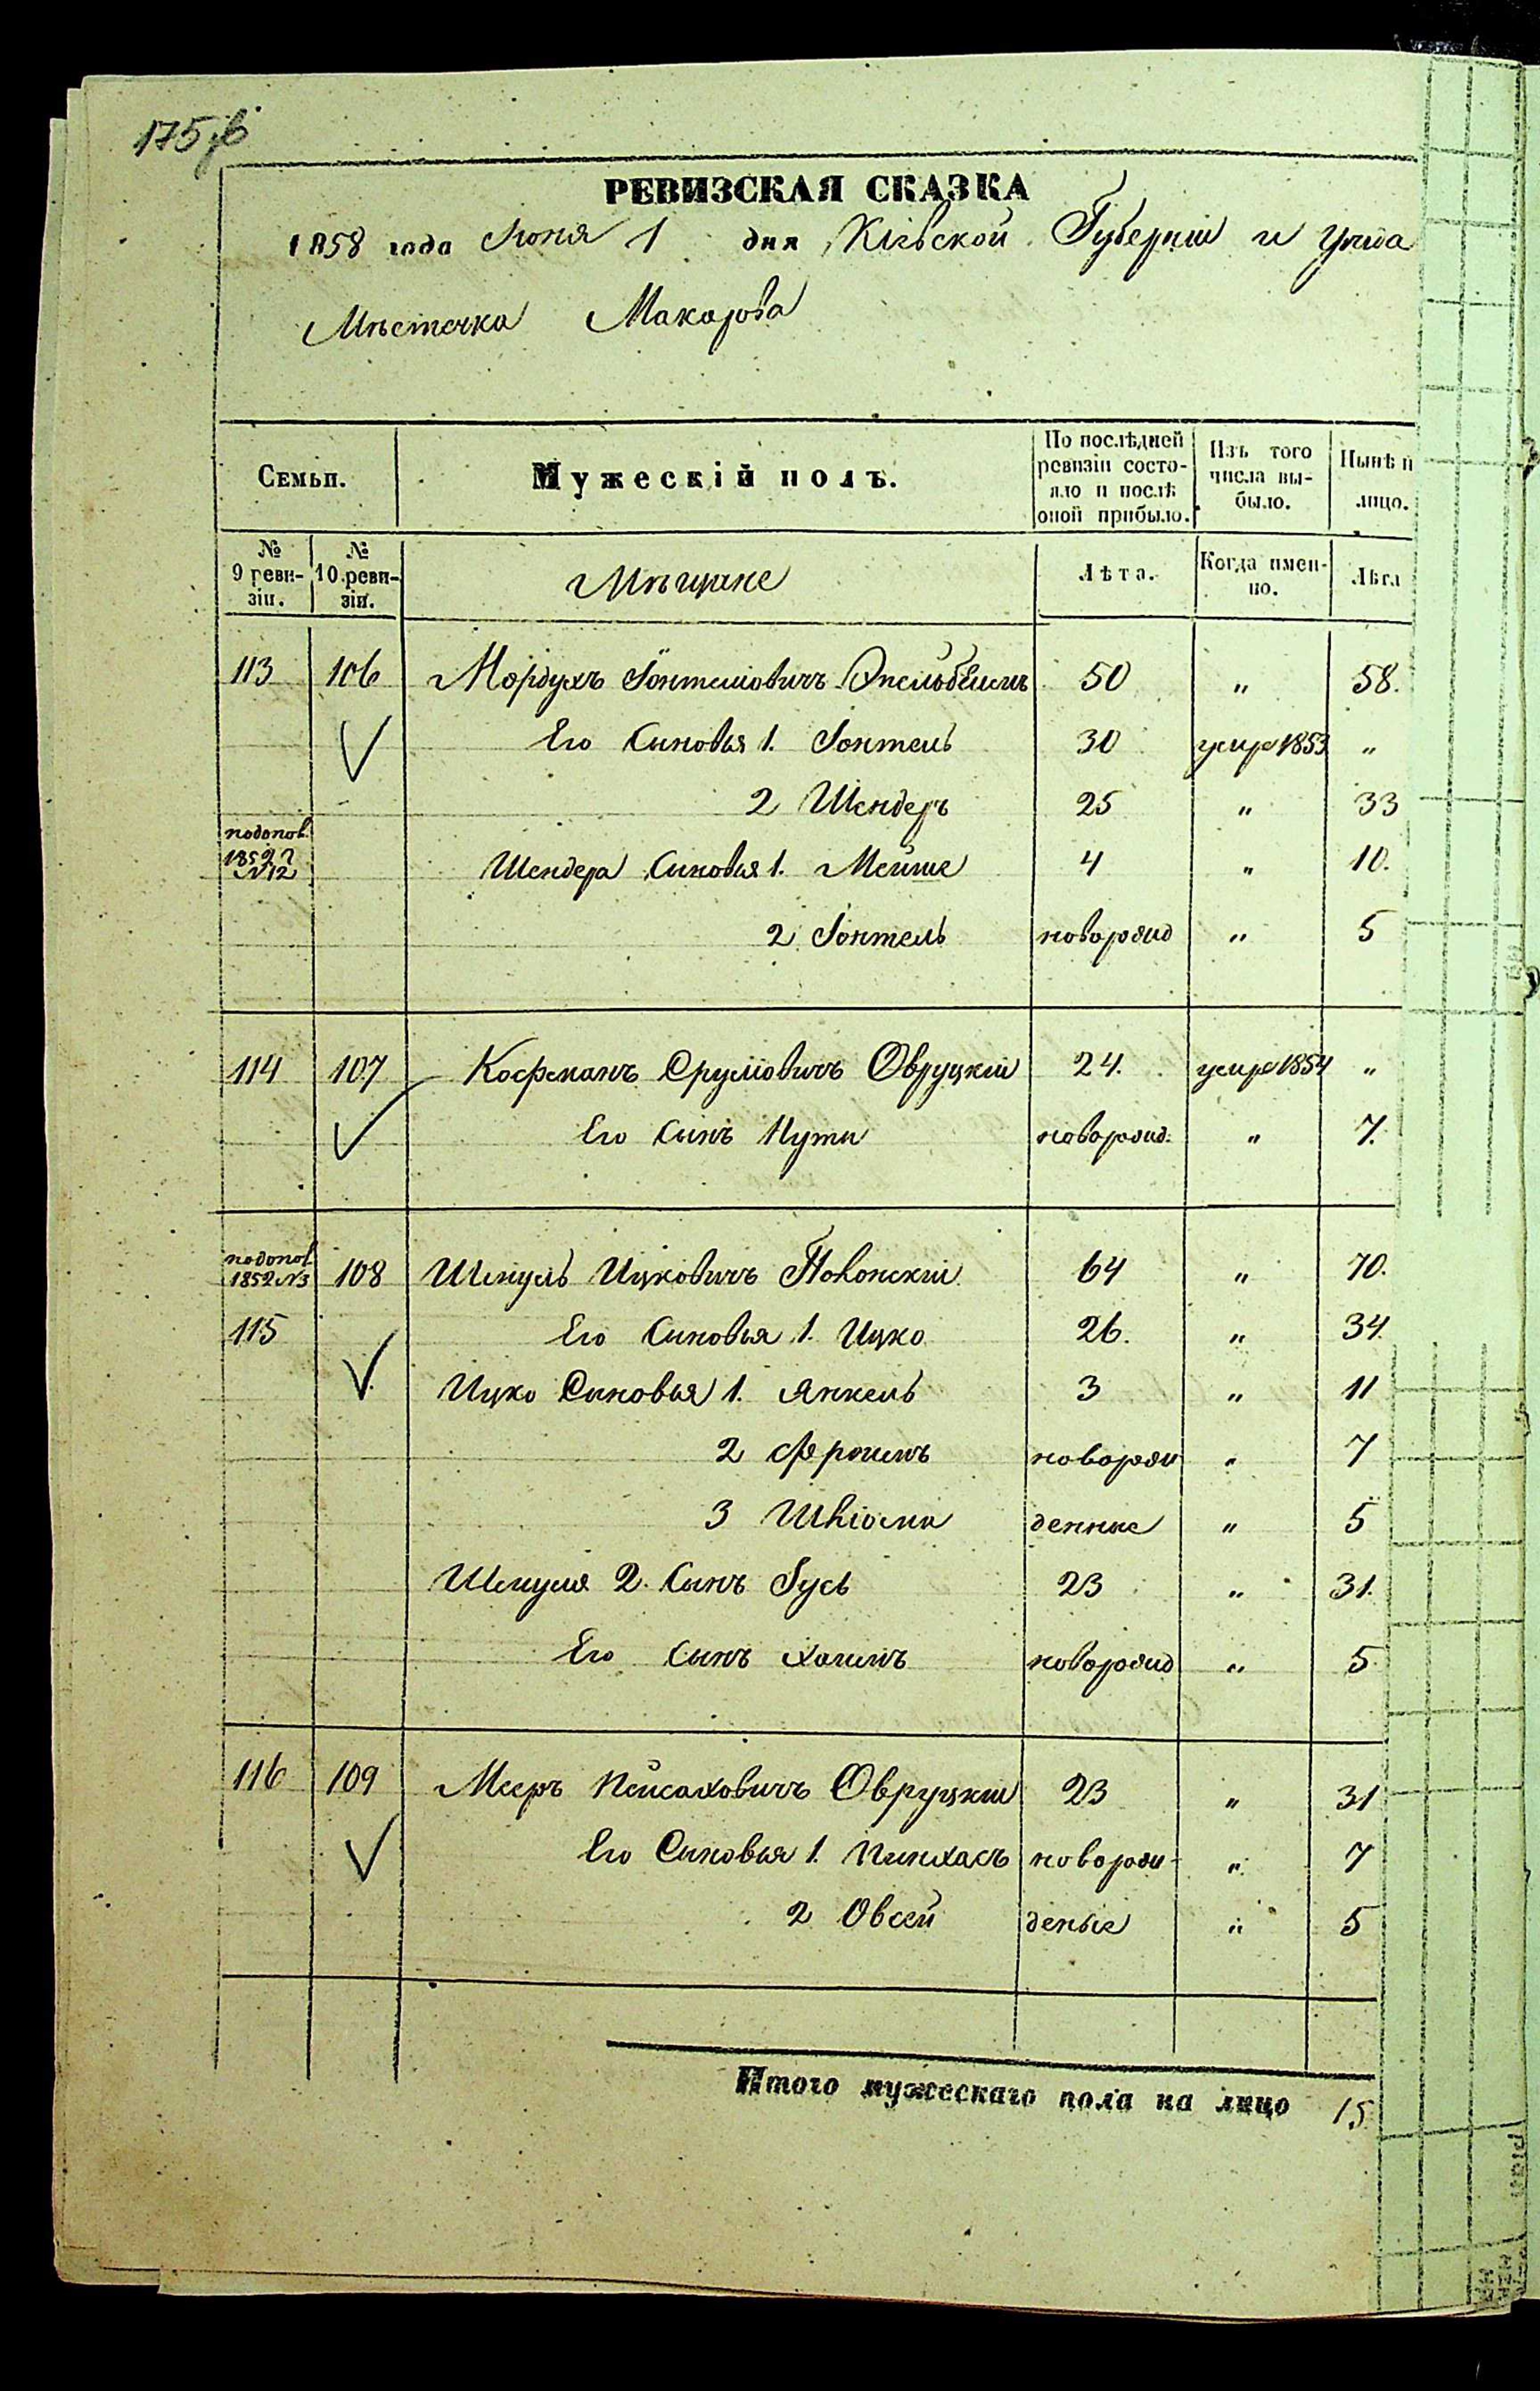 175 об
РЕВИЗСКАЯ СКАЗКА
1858 года Июня 1 дня Кіевской Губерніи и уезда
Мѣстечка Макарова
Семьи. Мужескій полъ. По послѣдней ревизіи состояло и послѣ оной прибыло. Изъ того числа выбыло. Нынѣ н лицо.
№ 9 ревизіи. № 10 ревизіи. Мѣщане Лѣта. Когда именно. Лѣта
113 106 Мордухъ Іонтелiовичъ 50 " 58.
Его Сыновья 1. Іонтель 30 умре 1853 "
2 Шендеръ 25 " 33
подопол. 1852 г №12 Шендера Сыновья 1. Мейше 4 " 10.
2 Іонтель новорожд " 5
114 107 Кофманъ Сруліовичъ Овруцкій 24. умре 1854 "
Его Сынъ Нути новорожд. " 7.
подопол 1852 №3 108 Шмуль Ицковичъ Полонскій 64 " 70.
115 Его Сыновья 1. Ицко 26. " 34.
Ицко Сыновья 1. Янкель 3 " 11
2 Фроимъ новорож " 7
3 Шліома денные " 5
Шмуля 2. Сынъ Гусь 23 " 31.
Его Сынъ Хаимъ новорожд " 5
116 109 Мееръ Пейсаховичъ Овруцкій 23 " 31
Его Сыновья 1. Пинхасъ новорож- " 7
2 Овсей деные " 5
Итого мужескаго пола на лицо 15